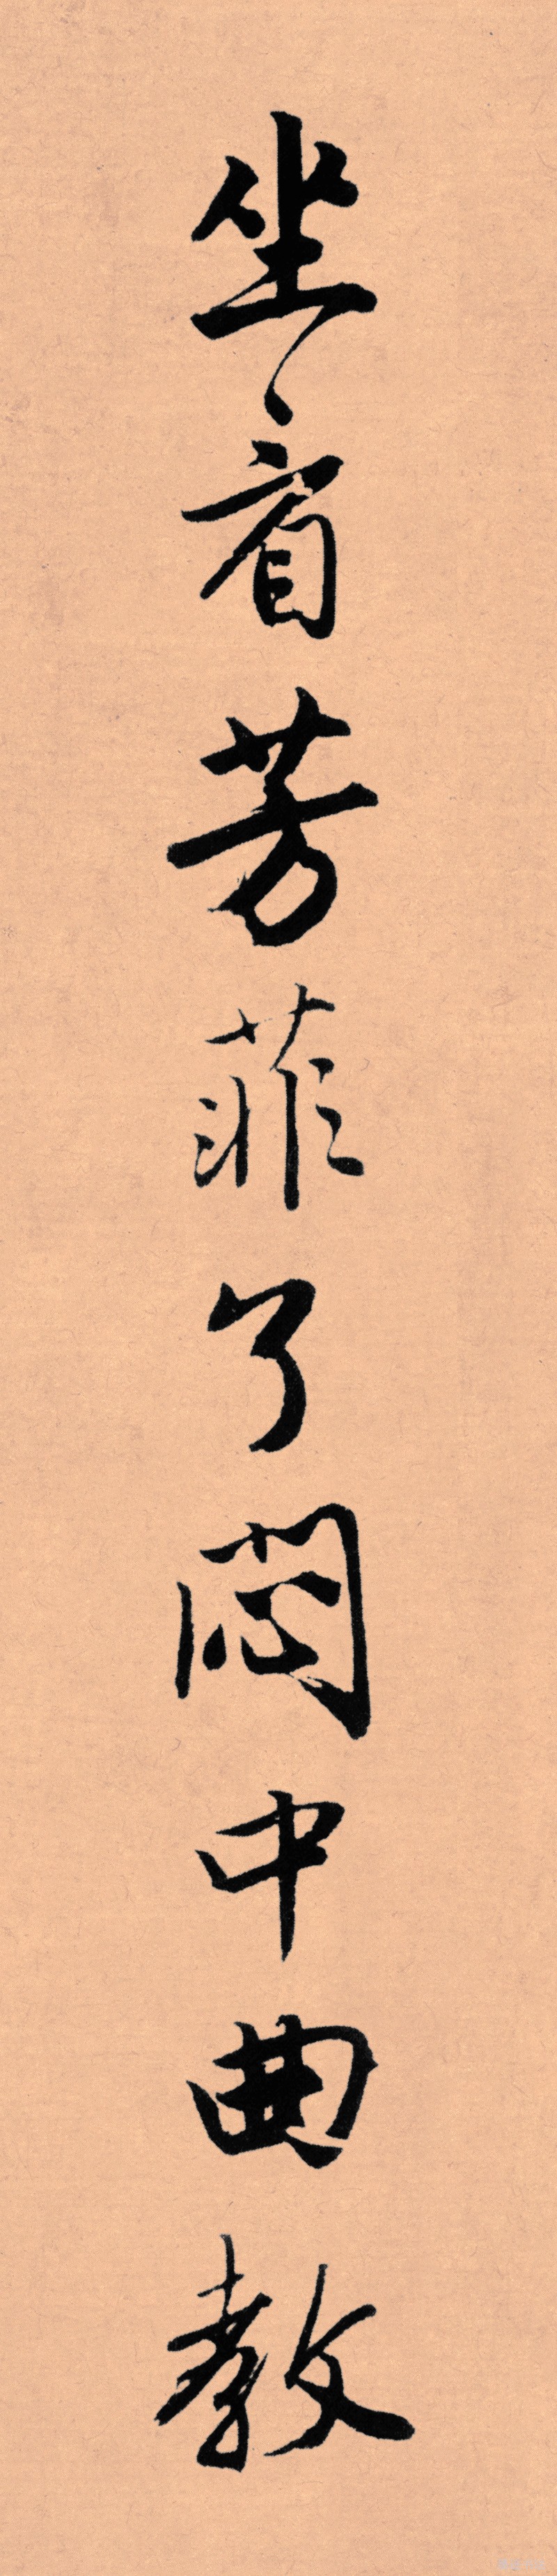 坐看芳菲了闷中曲教